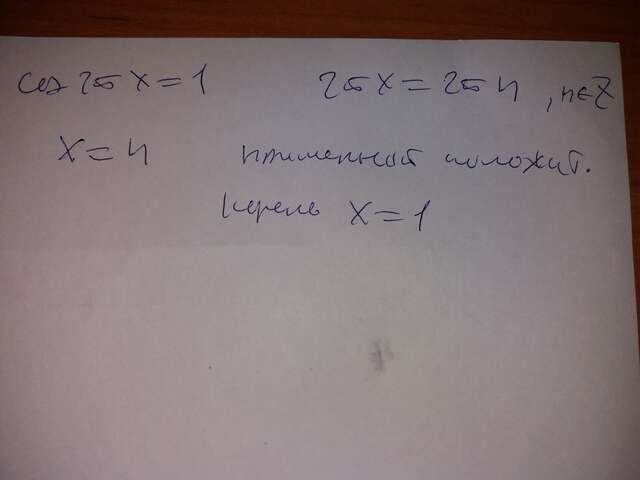 cos 2πx = 1 2πx = 2πn, n∈Z
x = n наименьший полож​ит.
корень x = 1